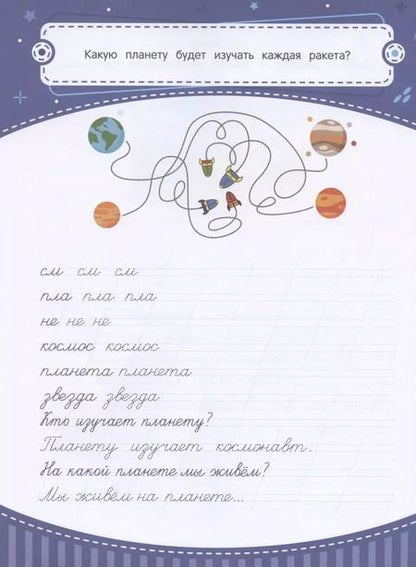 Какую планету будет изучать каждая ракета?
см см см
пла пла пла
не не не
космос космос
планета планета
звезда звезда
Кто изучает планету?
Планету изучает космонавт.
На какой планете мы живём?
Мы живём на планете...